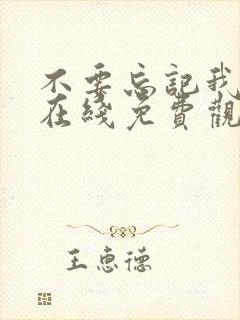 不要忘記我
在綫免費觀
王惠德